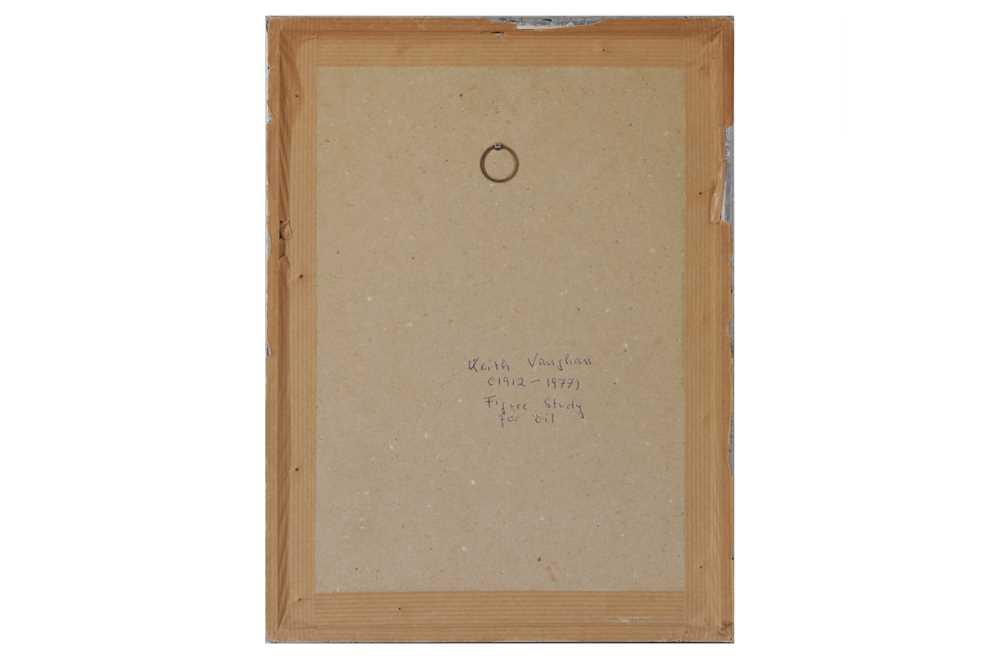 Keith Vaughan
(1912-1977)
Figure Study
for oil